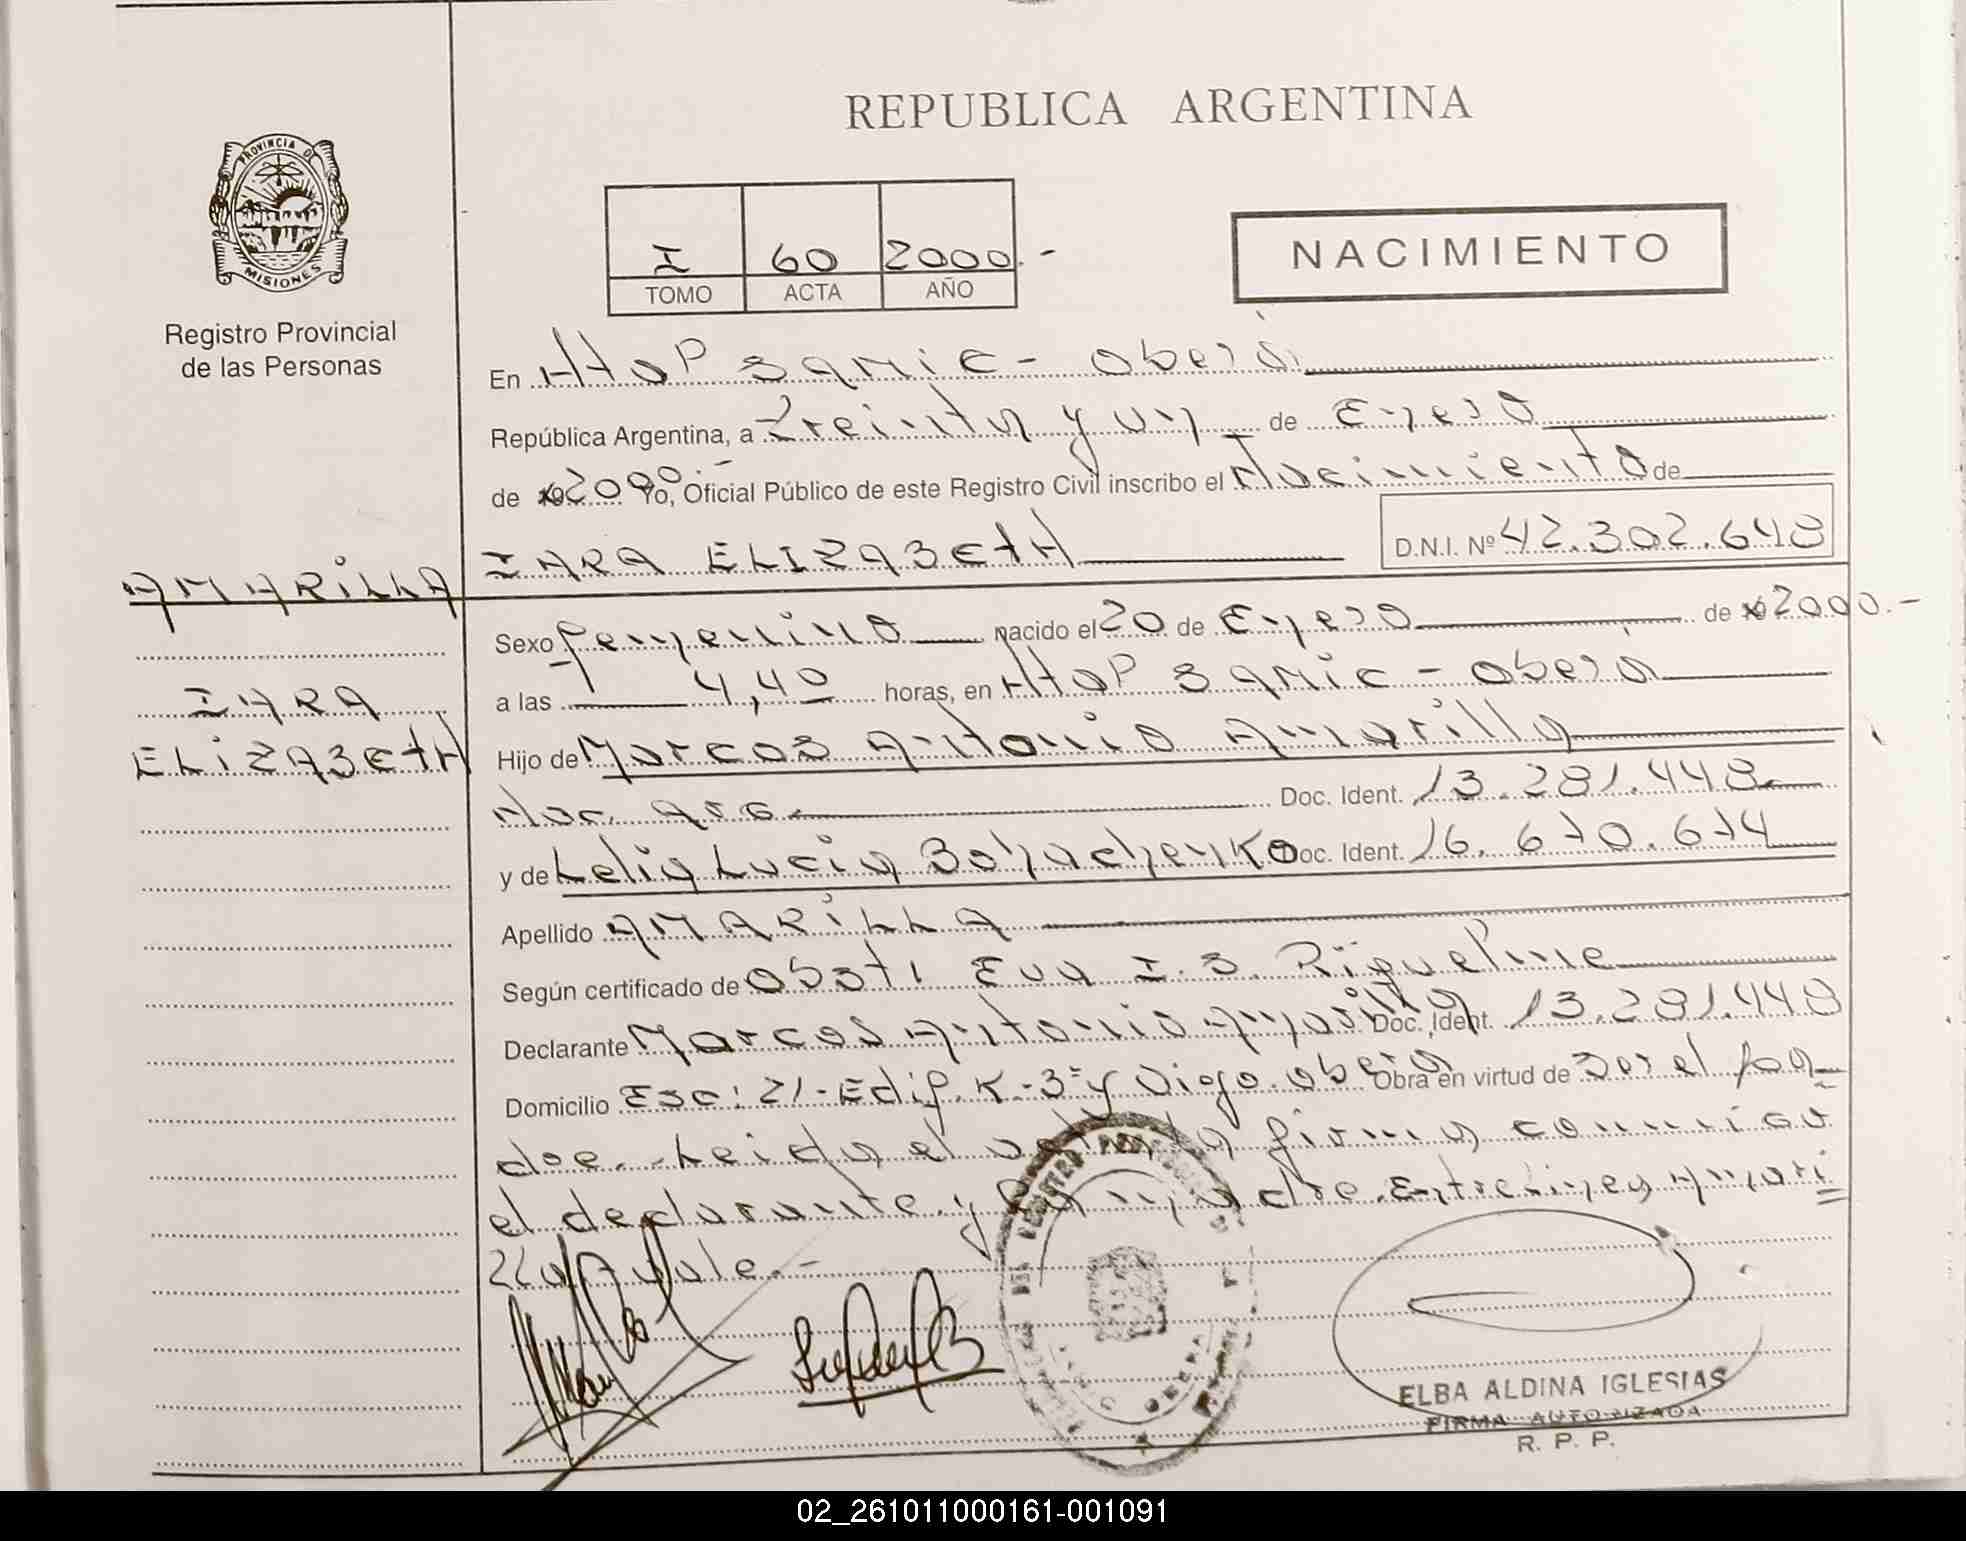 REPUBLICA ARGENTINA
PROVINCIA D
MISIONES
Registro Provincial
de las Personas
I 60 2000.-
TOMO ACTA AÑO
NACIMIENTO
En Hosp Samic - Oberá
República Argentina, a treinta y un de Enero
de 2000.- Yo, Oficial Público de este Registro Civil inscribo el Nacimiento de
IARA ELIZABETH D.N.I. Nº 42.302.648
AMARILLA
IARA
ELIZABETH
Sexo femenino nacido el 20 de Enero de 2000.-
a las 4,40 horas, en Hosp Samic - Oberá
Hijo de Marcos Antonio Amarilla
Nac. arg. Doc. Ident. 13.281.448
y de Lelia Lucia Bohachenko Doc. Ident. 16.670.674
Apellido AMARILLA
Según certificado de Obst. Eva I. S. Riquelme
Declarante Marcos Antonio Amarilla Doc. Ident. 13.281.448
Domicilio Esc: 21 - Edif. K - 3º y Oberá Obra en virtud de ser el pa
dre. Leida el acta la firma conmigo
el declarante y la madre. Entrelinea Amari
lla Vale.-
OBERA
ELBA ALDINA IGLESIAS
FIRMA AUTORIZADA
R. P. P.
02_261011000161-001091